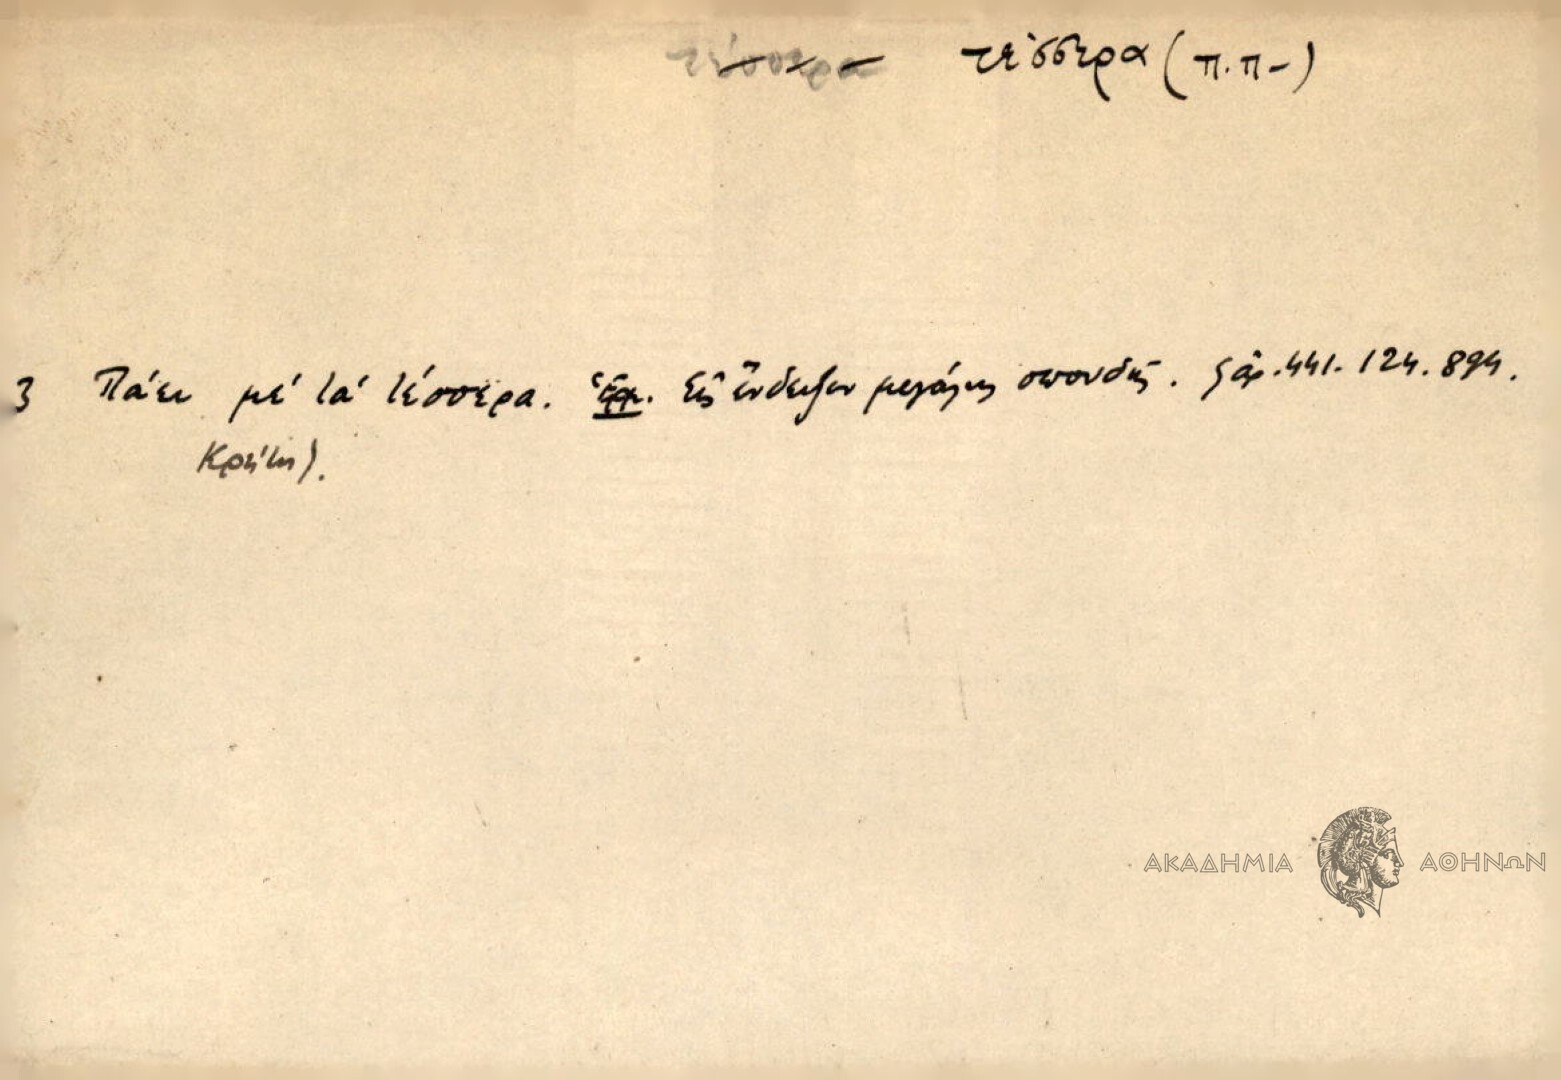 τέσσερα τέσσερα (π.π-)
3 Πάει μέ τά τέσσερα. Ἑρμ. Εἰς ἔνδειξιν μεγάλης σπουδῆς. 441. 124. 894.
Κρήτη).
ΑΚΑΔΗΜΙΑ ΑΘΗΝΩΝ